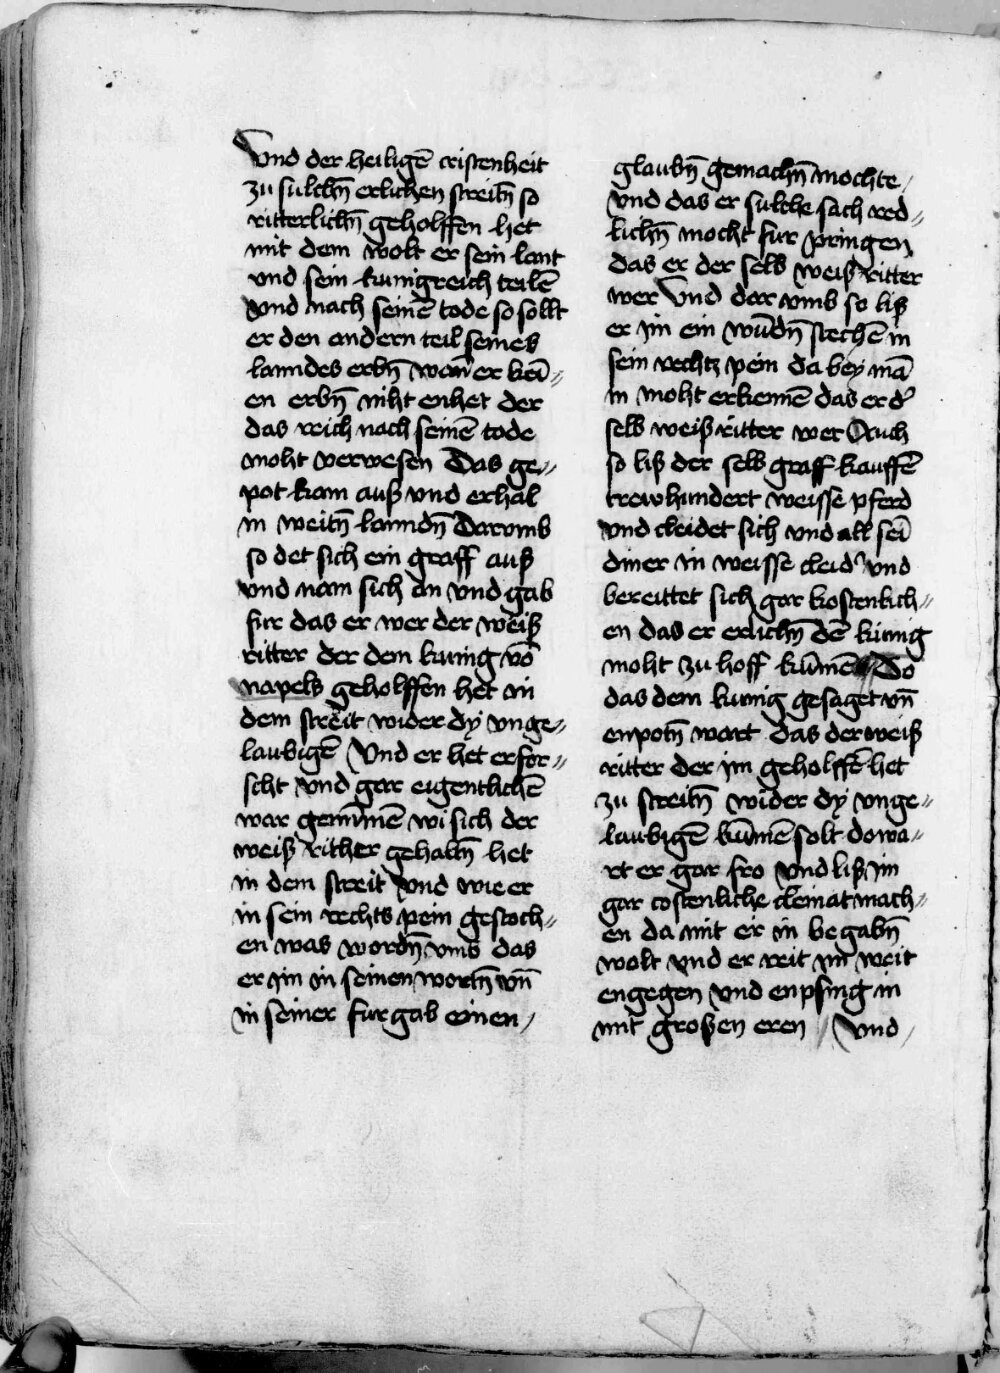 Vnd der heiligē cristenheit
zu sulchn̄ erlichen streitn̄ so
ritterlichn̄ geholffen het
mit dem wolt er sein lant
vnd sein kunigreich teilē
Vnd nach seinē tode so sollt
er den andern teil seines
lanndes erbn̄ wan̄ er kei᷑ =
en erbn̄ niht enhet der
das reich nach seinē tode
moht verwesen Das ge=
pot kam auß vnd erhal
in weitn̄ lanndn̄ Darvmb
so det sich ein graff auß
vnd nam sich an vnd gab
fur das er wer der weiß
ritter der dem kunig vō
napels geholffen het in
dem streit wider dy vnge=
laubigē Vnd er het erfor=
scht vnd gar eigentlichē
war genūmē wi sich der
weiß rither gehaltn̄ het
in dem streit Vnd wie er
in sein rechts pein gestoch=
en was wordn̄ vmb das
er im in seinen wortn̄ vn̄
in seiner furgab einen /
glaubn̄ gemachn̄ mochte /
vnd das er sulche sach red=
lichn̄ mocht fur pringen
das er der selb weiß ritter
wer Vnd dar vmb so liß
er im ein wūdn̄ stechē in
sein rechtz pein da bey mā
in moht erkennē das er d᷑
selb weiß ritter wer Auch
so liß der selb graff kauffē
trewhundert weisse pferd
vnd cleidet sich vnd all sei᷑
diner in weisse cleid᷑ vnd
bereittet sich gar kostenlich=
en das er erlichn̄ dē kunig
moht zu hoff kūmē Do
das dem kunig gesaget vn̄
enpotn̄ wart das der weiß
ritter der im geholffē het
zu streitn̄ wider dy vnge=
laubigē kūmē solt do wa=
rt er gar fro Vnd liß im
gar costenliche cleinat mach=
en da mit er in begabn̄
wolt vnd er reit im weit
engegen vnd enpfing in
mit großen eren // Vnd /